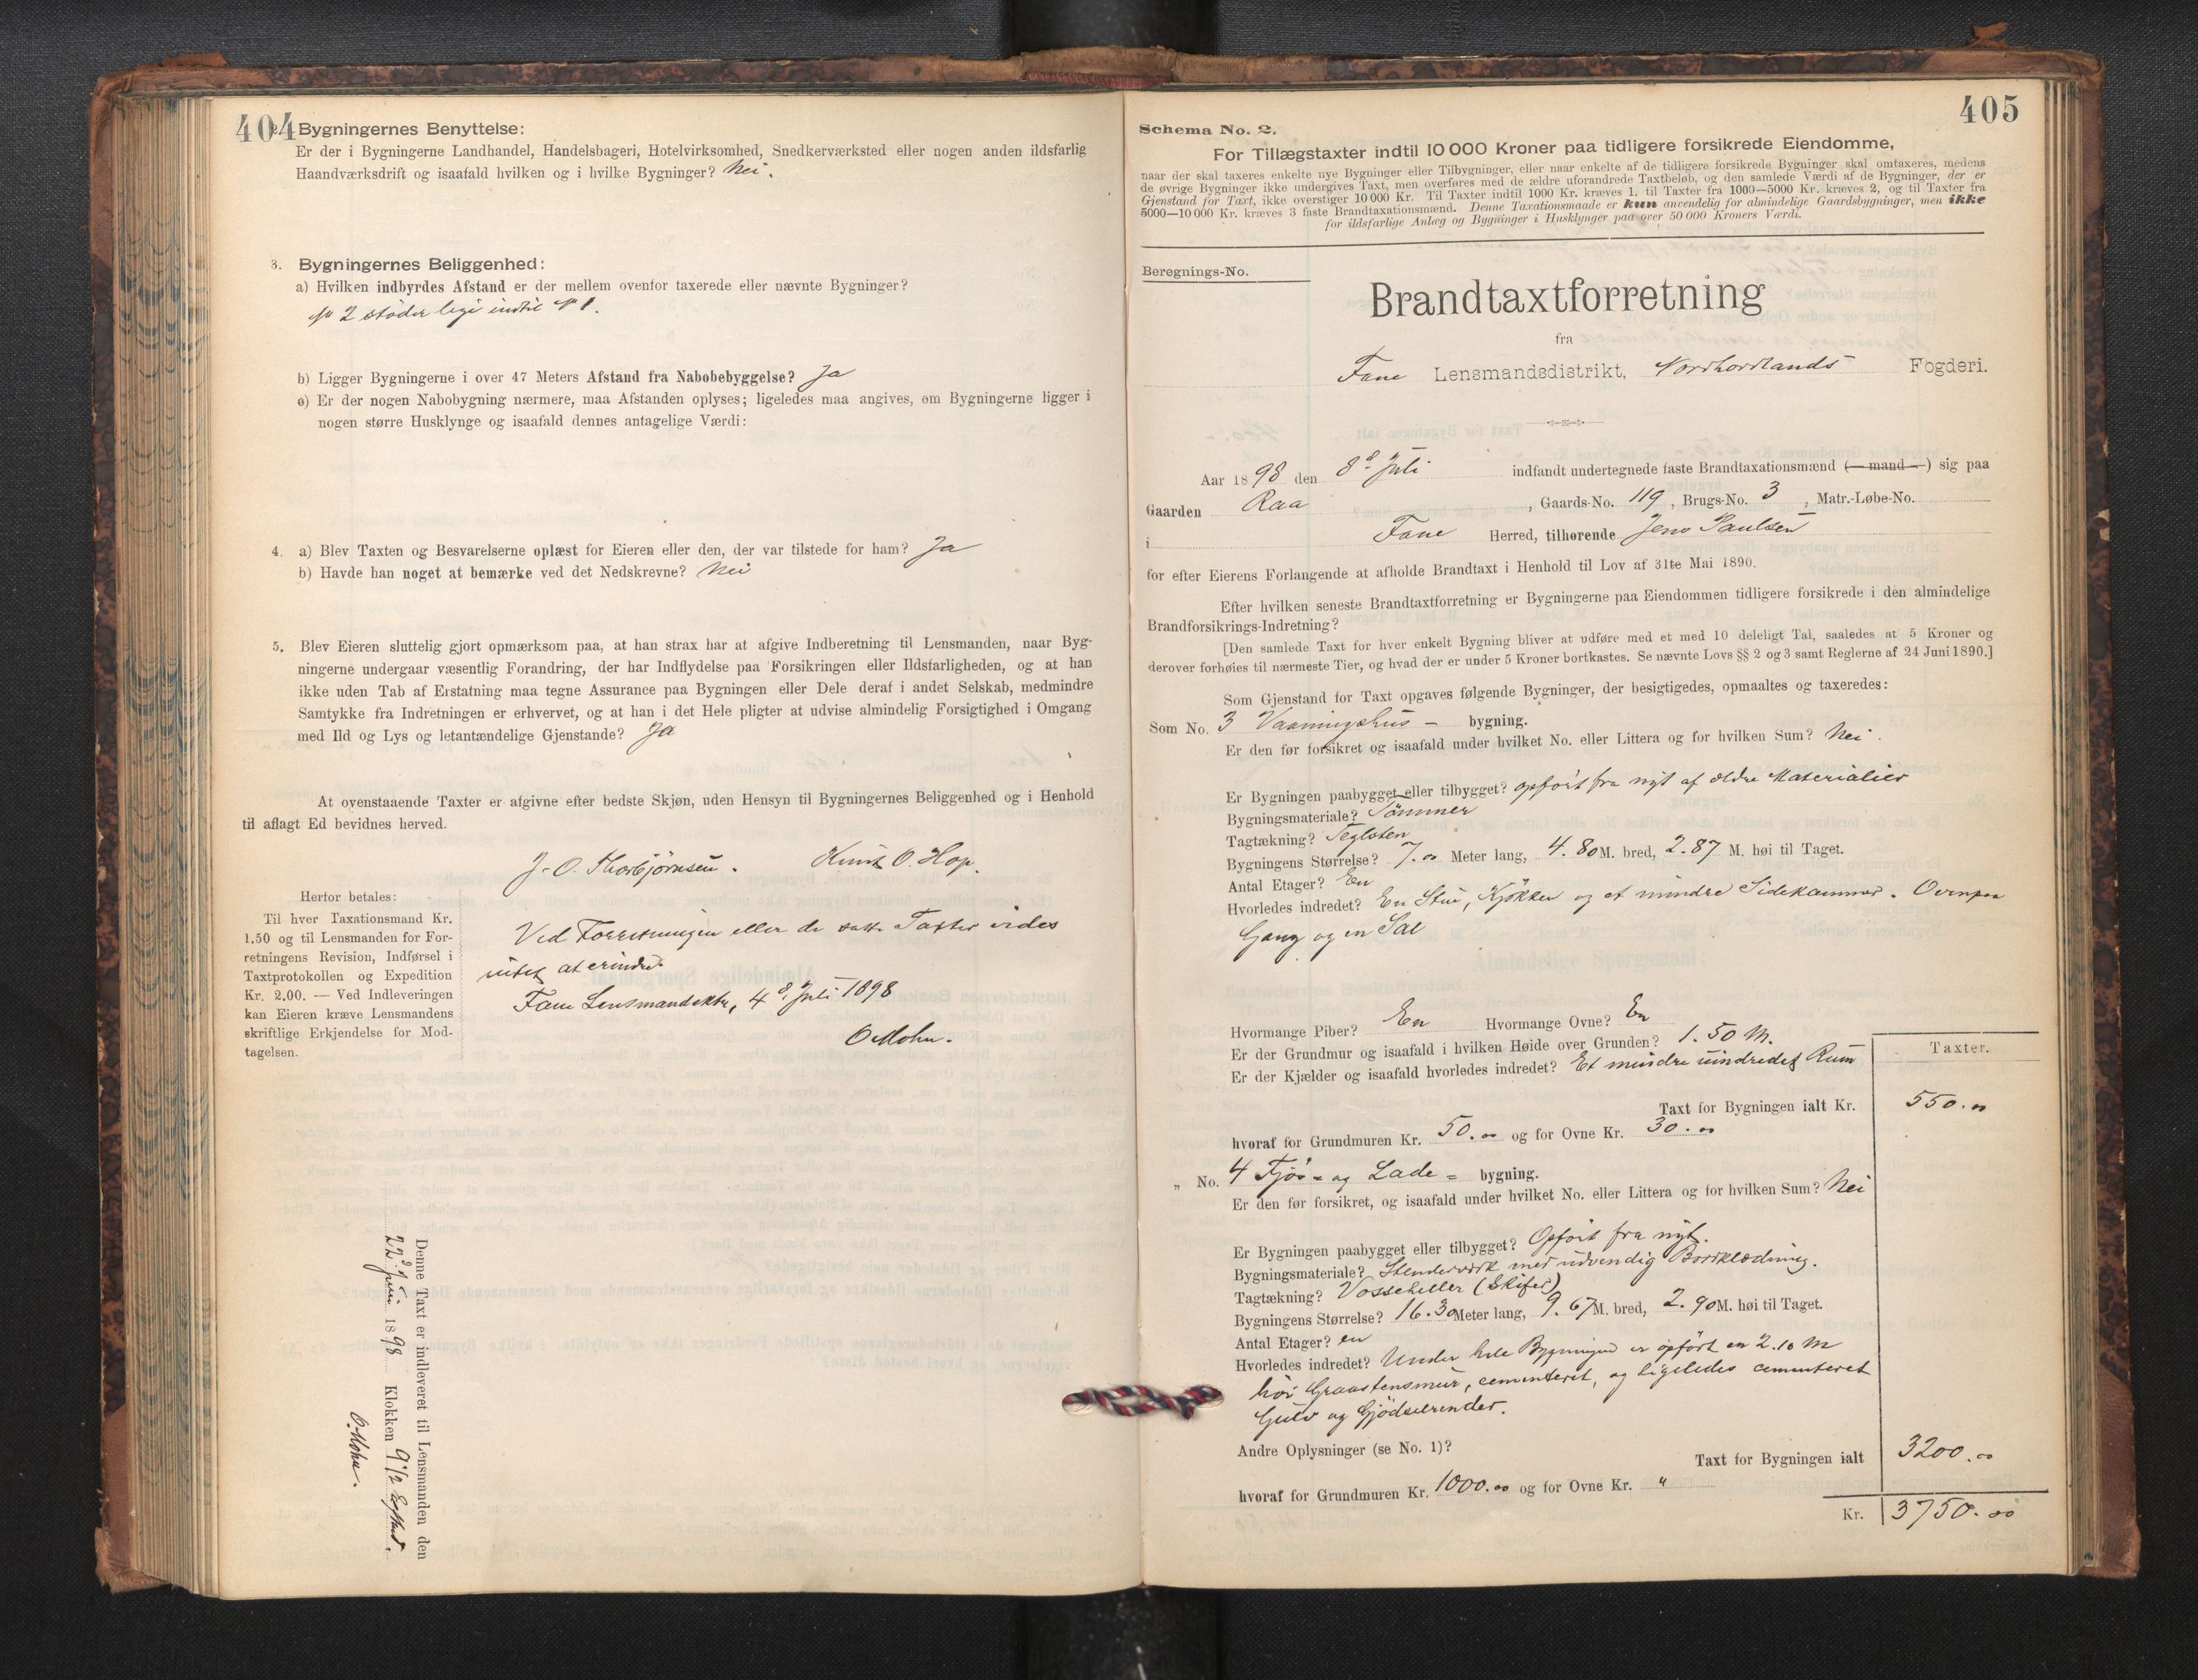 404
2. Bygningernes Benyttelse:
Er der i Bygningerne Landhandel, Handelsbageri, Hotelvirksomhed, Snedkerværksted eller nogen anden ildsfarlig
Haandværksdrift og isaafald hvilken og i hvilke Bygninger? Nei.
3. Bygningernes Beliggenhed:
a) Hvilken indbyrdes Afstand er der mellem ovenfor taxerede eller nævnte Bygninger?
No 2 støder lige indtil No 1.
b) Ligger Bygningerne i over 47 Meters Afstand fra Nabobebyggelse? Ja
c) Er der nogen Nabobygning nærmere, maa Afstanden oplyses; ligeledes maa angives, om Bygningerne ligger i
nogen større Husklynge og isaafald dennes antagelige Værdi:
4. a) Blev Taxten og Besvarelserne oplæst for Eieren eller den, der var tilstede for ham? Ja
b) Havde han noget at bemærke ved det Nedskrevne? Nei
5. Blev Eieren sluttelig gjort opmærksom paa, at han strax har at afgive Indberetning til Lensmanden, naar Byg-
ningerne undergaar væsentlig Forandring, der har Indflydelse paa Forsikringen eller Ildsfarligheden, og at han
ikke uden Tab af Erstatning maa tegne Assurance paa Bygningen eller Dele deraf i andet Selskab, medmindre
Samtykke fra Indretningen er erhvervet, og at han i det Hele pligter at udvise almindelig Forsigtighed i Omgang
med Ild og Lys og letantændelige Gjenstande? Ja
At ovenstaaende Taxter er afgivne efter bedste Skjøn, uden Hensyn til Bygningernes Beliggenhed og i Henhold
til aflagt Ed bevidnes herved.
J. O. Thorbjørnsen. Knut O. Hop.
Herfor betales:
Til hver Taxationsmand Kr.
1.50 og til Lensmanden for For-
retningens Revision, Indførsel i
Taxtprotokollen og Expedition
Kr. 2.00. — Ved Indleveringen
kan Eieren kræve Lensmandens
skriftlige Erkjendelse for Mod-
tagelsen.
Ved Forretningen eller de satte Taxter vides
intet at erindre.
Fane Lensmandsktr, 4 Juli 1898
O Mohn.
Denne Taxt er indleveret til Lensmanden den
22d Juni 1898 Klokken 9 1/2 Efterm.
O. Mohn.
405
Schema No. 2.
For Tillægstaxter indtil 10 000 Kroner paa tidligere forsikrede Eiendomme,
naar der skal taxeres enkelte nye Bygninger eller Tilbygninger, eller naar enkelte af de tidligere forsikrede Bygninger skal omtaxeres, medens
de øvrige Bygninger ikke undergives Taxt, men overføres med de ældre uforandrede Taxtbeløb, og den samlede Værdi af de Bygninger, der er
Gjenstand for Taxt, ikke overstiger 10 000 Kr. Til Taxter indtil 1000 Kr. kræves 1, til Taxter fra 1000—5000 Kr. kræves 2, og til Taxter fra
5000—10 000 Kr. kræves 3 faste Brandtaxationsmænd. Denne Taxationsmaade er kun anvendelig for almindelige Gaardsbygninger, men ikke
for ildsfarlige Anlæg og Bygninger i Husklynger paa over 50 000 Kroners Værdi.
Beregnings-No.
Brandtaxtforretning
fra
Fane Lensmandsdistrikt, Nordhordlands Fogderi.
Aar 1898 den 8d Juli indfandt undertegnede faste Brandtaxationsmænd (— mand —) sig paa
Gaarden Raa, Gaards-No. 119, Brugs-No. 3, Matr.-Løbe-No.
i Fane Herred, tilhørende Jens Paulsen
for efter Eierens Forlangende at afholde Brandtaxt i Henhold til Lov af 31te Mai 1890.
Efter hvilken seneste Brandtaxtforretning er Bygningerne paa Eiendommen tidligere forsikrede i den almindelige
Brandforsikrings-Indretning?
[Den samlede Taxt for hver enkelt Bygning bliver at udføre med et med 10 deleligt Tal, saaledes at 5 Kroner og
derover forhøies til nærmeste Tier, og hvad der er under 5 Kroner bortkastes. Se nævnte Lovs §§ 2 og 3 samt Reglerne af 24 Juni 1890.]
Som Gjenstand for Taxt opgaves følgende Bygninger, der besigtigedes, opmaaltes og taxeredes:
Som No. 3 Vaaningshus - bygning.
Er den før forsikret og isaafald under hvilket No. eller Littera og for hvilken Sum? Nei.
Er Bygningen paabygget eller tilbygget? opført fra nyt af ældre Materialier
Bygningsmateriale? Tømmer
Tagtækning? Teglsten
Bygningens Størrelse? 7.00 Meter lang, 4.80 M. bred, 2.87 M. høi til Taget.
Antal Etager? En
Hvorledes indredet? En Stue, Kjøkken og et mindre Sidekammer. Ovenpaa
Gang og en Sal
Hvormange Piber? En Hvormange Ovne? En
Er der Grundmur og isaafald i hvilken Høide over Grunden? 1.50 M.
Er der Kjælder og isaafald hvorledes indredet? Et mindre uindredet Rum
Taxter.
Taxt for Bygningen ialt Kr. 550.00
hvoraf for Grundmuren Kr. 50.00 og for Ovne Kr. 30.00
„ No. 4 Fjøs- og Lade - bygning.
Er den før forsikret, og isaafald under hvilket No. eller Littera og for hvilken Sum? Nei
Er Bygningen paabygget eller tilbygget? Opført fra nyt.
Bygningsmateriale? Stenderværk med udvendig Bordklædning.
Tagtækning? Vosseheller (Skifer)
Bygningens Størrelse? 16.30 Meter lang, 9.67 M. bred, 2.90 M. høi til Taget.
Antal Etager? en
Hvorledes indredet? Under hele Bygningen er opført en 2.10 M
høi Graastensmur, cementeret, og ligeledes cementeret
Gulv og Gjødselrender.
Andre Oplysninger (se No. 1)?
Taxt for Bygningen ialt 3200.00
hvoraf for Grundmuren Kr. 1000.00 og for Ovne Kr. "
Kr. 3750.00